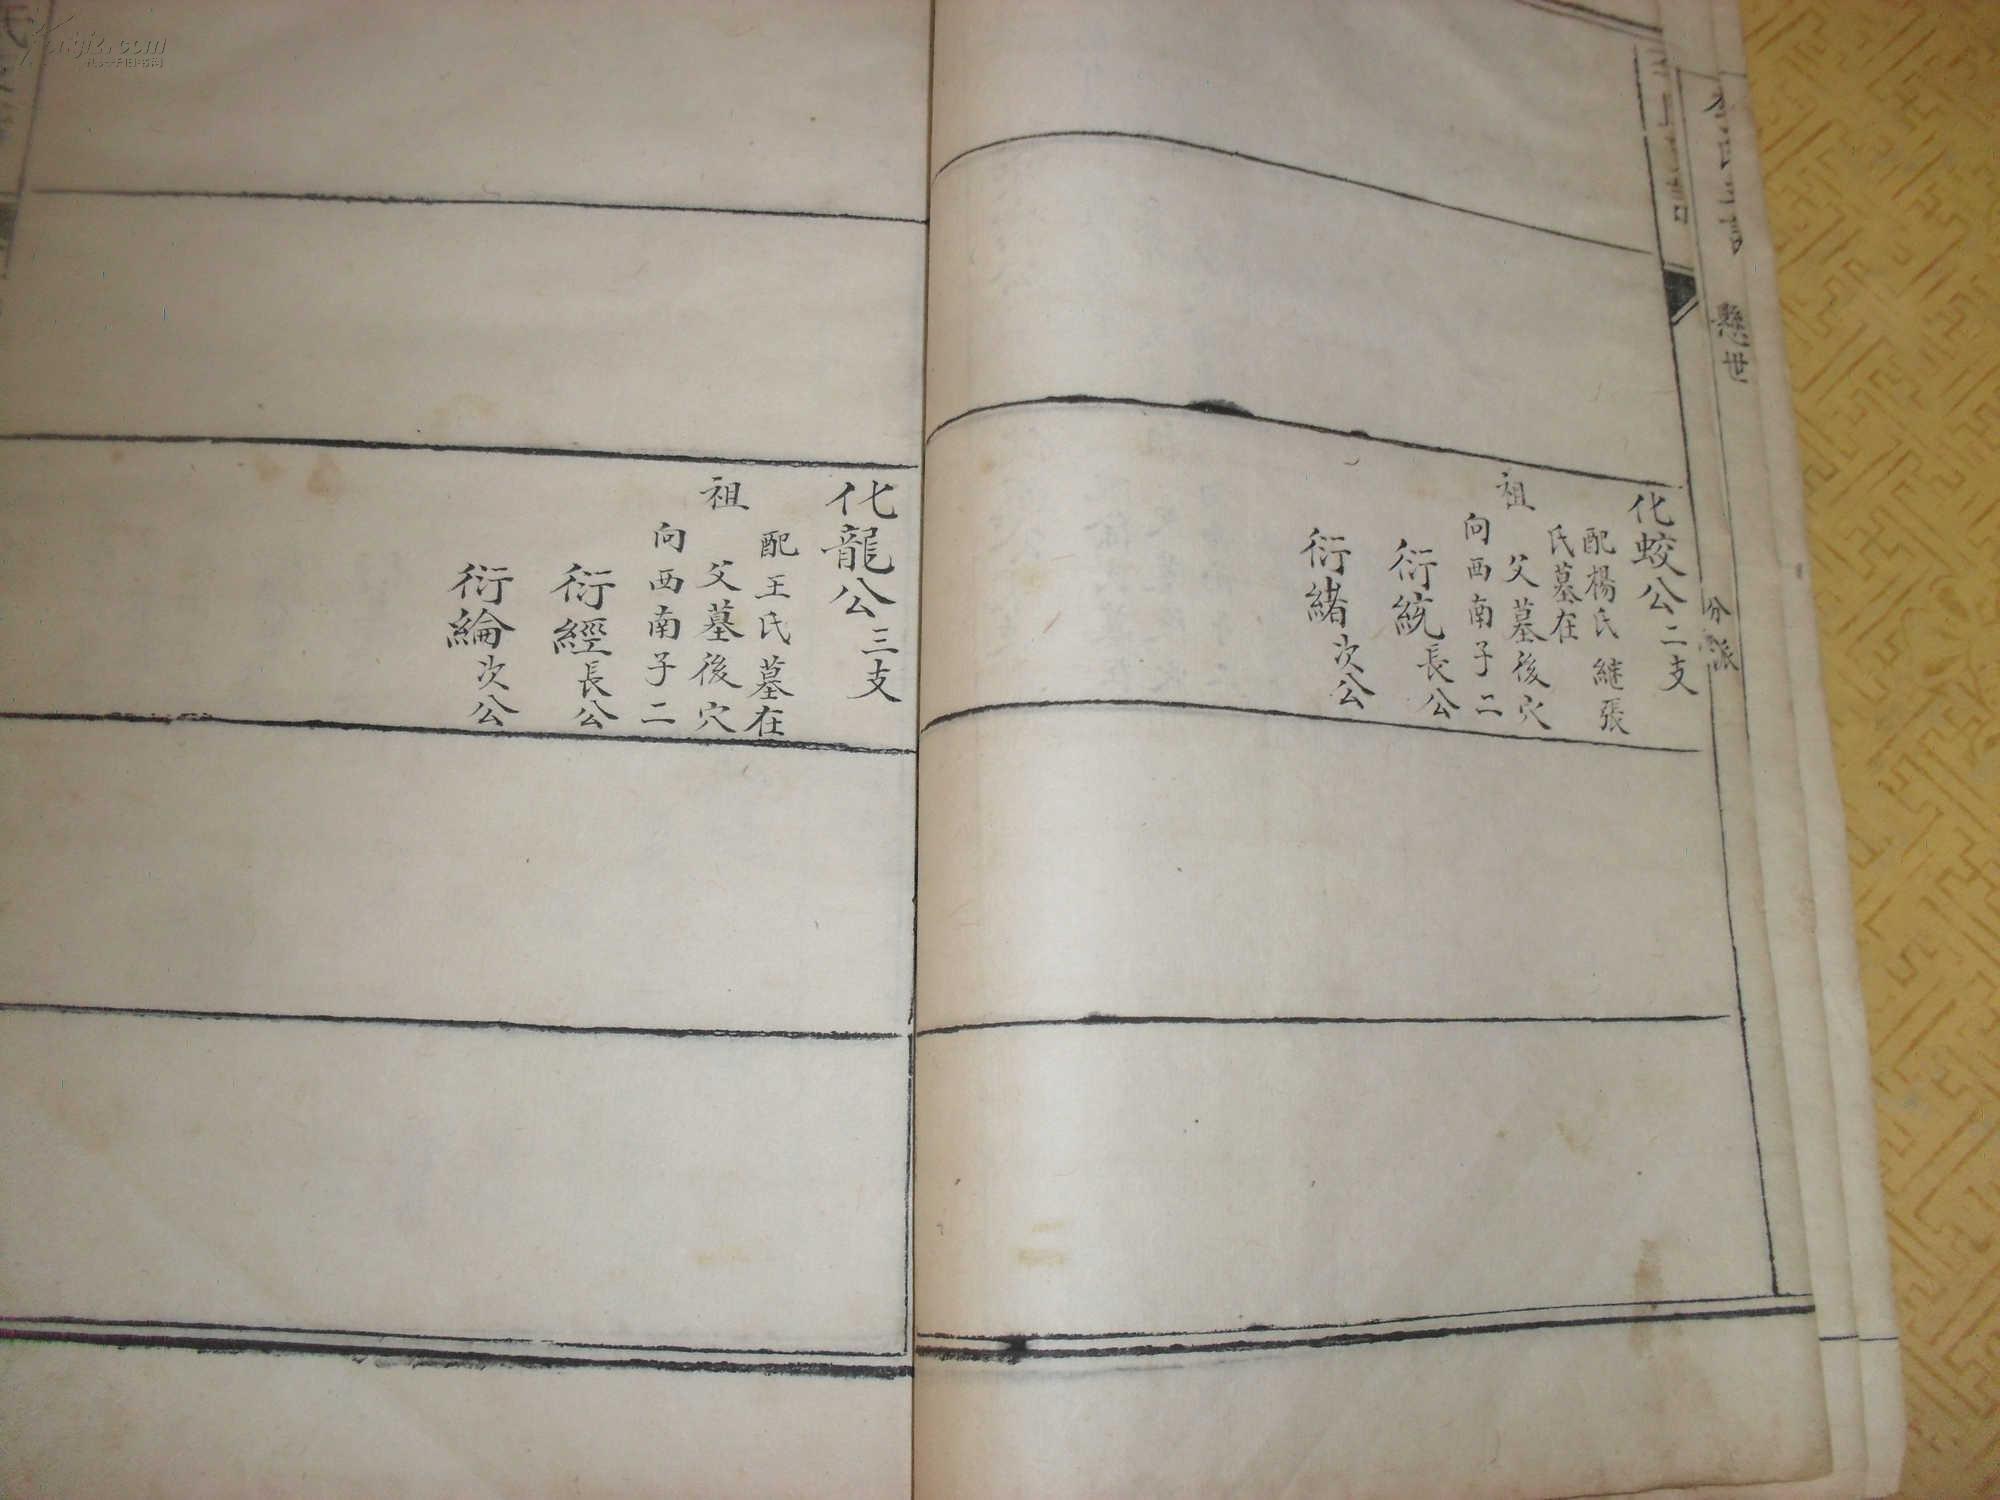 懸世
分派
化蛟公二支
配楊氏 継張
氏墓在
祖
父墓後穴
向西南子二
衍統長公
衍緒次公
化龍公三支
配王氏墓在
祖
父墓後穴
向西南子二
衍經長公
衍綸次公